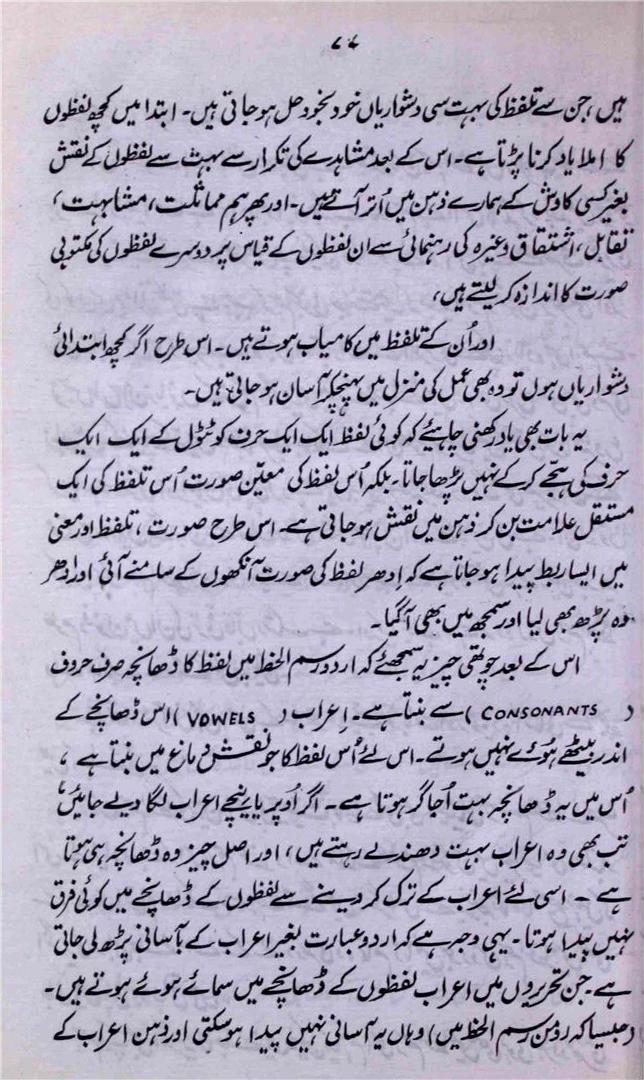 ۷۶
ہیں، جن سے تلفظ کی بہت سی دشواریاں خود بخود حل ہو جاتی ہیں۔ ابتدا میں کچھ لفظوں
کا املا یاد کرنا پڑتا ہے۔ اس کے بعد مشاہدے کی تکرار سے بہت سے لفظوں کے نقش
بغیر کسی کاوش کے ہمارے ذہن میں اُتر آتے ہیں۔ اور پھر ہم مماثلت، مشابہت،
تقابل، اشتقاق وغیرہ کی رہنمائی سے ان لفظوں کے قیاس پر دوسرے لفظوں کی مکتوبی
صورت کا اندازہ کر لیتے ہیں،
اور اُن کے تلفظ میں کامیاب ہوتے ہیں۔ اس طرح اگر کچھ ابتدائی
دشواریاں ہوں تو وہ بھی عمل کی منزل میں پہنچکر آسان ہو جاتی ہیں۔
یہ بات بھی یاد رکھنی چاہیئے کہ کوئی لفظ ایک ایک حرف کو ٹٹول کے ایک ایک
حرف کی ہجے کر کے نہیں پڑھا جاتا۔ بلکہ اُس لفظ کی معیّن صورت اُس تلفظ کی ایک
مستقل علامت بن کر ذہن میں نقش ہو جاتی ہے۔ اس طرح صورت، تلفظ اور معنی
میں ایسا ربط پیدا ہو جاتا ہے کہ اِدھر لفظ کی صورت آنکھوں کے سامنے آئی اور اُدھر
وہ پڑھ بھی لیا اور سمجھ میں بھی آگیا۔
اس کے بعد چوتھی چیز یہ سمجھئے کہ اردو رسم الخط میں لفظ کا ڈھانچہ صرف حروف
(CONSONANTS) سے بنتا ہے۔ اِعراب (VOWELS) اس ڈھانچے کے
اندر بیٹھے ہوئے نہیں ہوتے۔ اس لئے اُس لفظ کا جو نقش دماغ میں بنتا ہے،
اُس میں یہ ڈھانچہ بہت اُجاگر ہوتا ہے۔ اگر اُوپر یا نیچے اعراب لگا دیے جائیں
تب بھی وہ اعراب بہت دھندلے رہتے ہیں، اور اصل چیز وہ ڈھانچہ ہی ہوتا
ہے۔ اسی لئے اعراب کے ترک کر دینے سے لفظوں کے ڈھانچے میں کوئی فرق
نہیں پیدا ہوتا۔ یہی وجہ ہے کہ اردو عبارت بغیر اعراب کے بآسانی پڑھ لی جاتی
ہے۔ جن تحریروں میں اعراب لفظوں کے ڈھانچے میں سمائے ہوئے ہوتے ہیں۔
(جیسا کہ رومن رسم الخط میں) وہاں یہ آسانی نہیں پیدا ہو سکتی اور ذہن اعراب کے